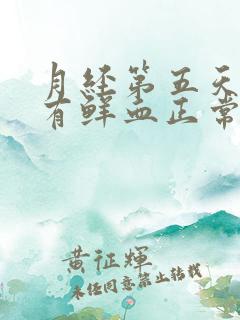 月经第五天
有鲜血正常
黄征辉
未经同意禁止转载